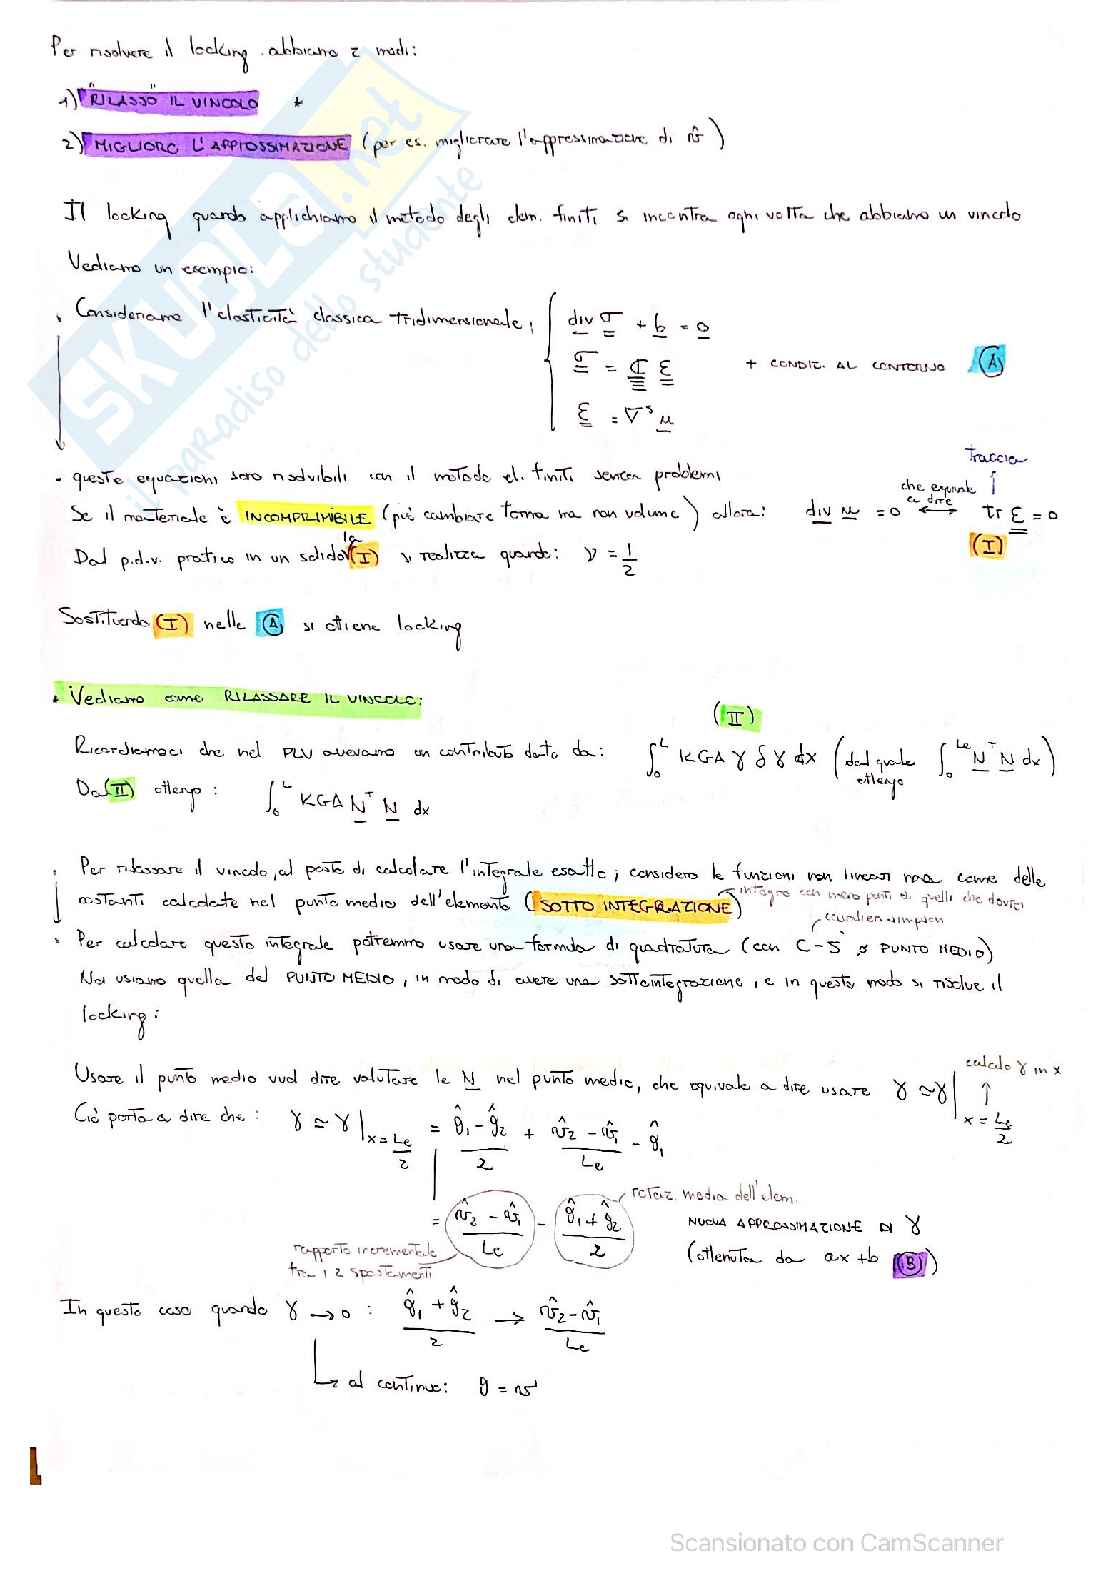 Per risolvere il locking abbiamo 2 modi:
1) "RILASSO" IL VINCOLO
2) MIGLIORO L'APPROSSIMAZIONE (per es. migliorare l'approssimazione di v̂)
Il locking quando applichiamo il metodo degli elem. finiti si incontra ogni volta che abbiamo un vincolo
Vediamo un esempio:
Consideriamo l'elasticità classica tridimensionale,
div σ + b = 0
σ = ℂ ε
ε = ∇ˢ u
+ CONDIZ. AL CONTORNO (A)
- queste equazioni sono risolvibili con il metodo el. finiti senza problemi
Se il materiale è INCOMPRIMIBILE (può cambiare forma ma non volume) allora: div u = 0 ⟷ che equivale a dire tr ε = 0 (I)
traccia
Dal p.d.v. pratico in un solido la (I) si realizza quando: ν = 1/2
Sostituendo (I) nelle (A) si ottiene locking
Vediamo come RILASSARE IL VINCOLO:
(II)
Ricordiamoci che nel PLV avevamo un contributo dato da: ∫₀ᴸ KGA γ δγ dx (dal quale ottengo ∫₀ᴸᵉ Nᵀ N dx)
Da (II) ottengo: ∫₀ᴸ KGA Nᵀ N dx
Per rilassare il vincolo, al posto di calcolare l'integrale esatto, considero le funzioni non lineari ma come delle
costanti calcolate nel punto medio dell'elemento (SOTTO INTEGRAZIONE)
integro con meno punti di quelli che dovrei
Per calcolare questo integrale potremmo usare una formula di quadratura (con C-S o PUNTO MEDIO)
Noi usiamo quella del PUNTO MEDIO, in modo di avere una sottointegrazione, e in questo modo si risolve il
locking:
Usare il punto medio vuol dire valutare le N nel punto medio, che equivale a dire usare γ ≃ γ|x = Le/2
calcolo γ in x
Ciò porta a dire che: γ ≃ γ|x = Le/2 = (φ̂₁ - φ̂₂)/2 + (v̂₂ - v̂₁)/Le - φ̂₁
= (v̂₂ - v̂₁)/Le - (φ̂₁ + φ̂₂)/2
rotaz. media dell'elem.
rapporto incrementale
tra i 2 spostamenti
NUOVA APPROSSIMAZIONE DI γ
(ottenuta da ax + b (B))
In questo caso quando γ → 0: (φ̂₁ + φ̂₂)/2 → (v̂₂ - v̂₁)/Le
al continuo: φ = v'
SKUOLA.net
il paradiso dello studente
Scansionato con CamScanner